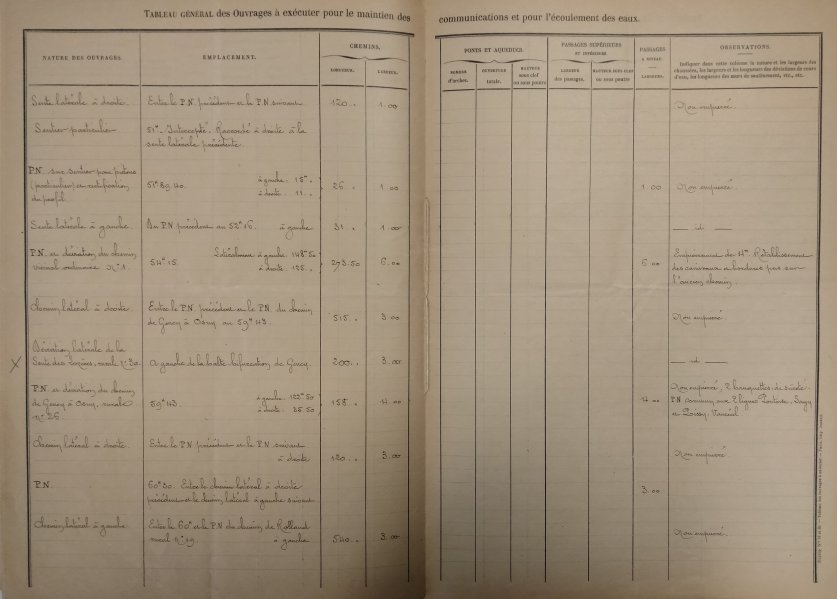 TABLEAU GÉNÉRAL des Ouvrages à exécuter pour le maintien des communications et pour l'écoulement des eaux.
NATURE DES OUVRAGES.
EMPLACEMENT.
CHEMINS.
LONGUEUR.
LARGEUR.
PONTS ET AQUEDUCS.
NOMBRE d'arches.
OUVERTURE totale.
HAUTEUR sous clef ou sous poutre
PASSAGES SUPÉRIEURS ET INFÉRIEURS
LARGEUR des passages.
HAUTEUR SOUS CLEF ou sous poutre
PASSAGES A NIVEAU.
LARGEUR.
OBSERVATIONS.
Indiquer dans cette colonne la nature et les largeurs des
chaussées, les largeurs et les longueurs des déviations de cours
d'eau, les longueurs des murs de soutènement, etc., etc.
Sente latérale à droite. Entre le P.N. précédent et le P.N. suivant 120 . . 1.00 Non empierré.
Sentier particulier 51k. Intercepté. Raccordé à droite à la
sente latérale précédente.
P.N. sur sentier pour piétons
(particulier) et rectification
du profil.
51k 89.40. à gauche. 15m .
à droite. 11 . .
26 . . 1 00 1 00 Non empierré.
Sente latérale à gauche. Du P.N. précédent au 52k 16. à gauche 31 . . 1.00 — id —
P.N. et déviation du chemin
vicinal ordinaire N° 1.
54k 15. Latéralement à gauche. 148m 50
à droite. 125 . .
273.50 6.00 6 00
Empierrement de 4m. Rétablissement
des caniveaux et bordures pris sur
l'ancien chemin.
Chemin latéral à droite. Entre le P.N. précédent et le P.N. du chemin
de Gency à Osny au 59k 43. 515 . . 3.00 Non empierré.
X Déviation latérale de la
Sente des , rural N° 30. A gauche de la halte bifurcation de Gency. 200 . . 3.00 — id —
P.N. et déviation du chemin
de Gency à Osny, rural
N° 26.
59k 43. à gauche. 122m 50
à droite. 35 50
158 . . 4.00 4 00
Non empierré, 2 banquettes de sûreté.
P.N. commun aux 2 lignes Pontoise,
et Poissy,
Chemin latéral à droite. Entre le P.N. précédent et le P.N. suivant
à droite 120 . . 3.00 Non empierré
P.N. 60k 30. Entre le chemin latéral à droite
précédent et le chemin latéral à gauche suivant 3.00
Chemin latéral à gauche Entre le 60k et le P.N. du chemin de
rural N° 19. à gauche 540 . . 3.00 Non empierré.